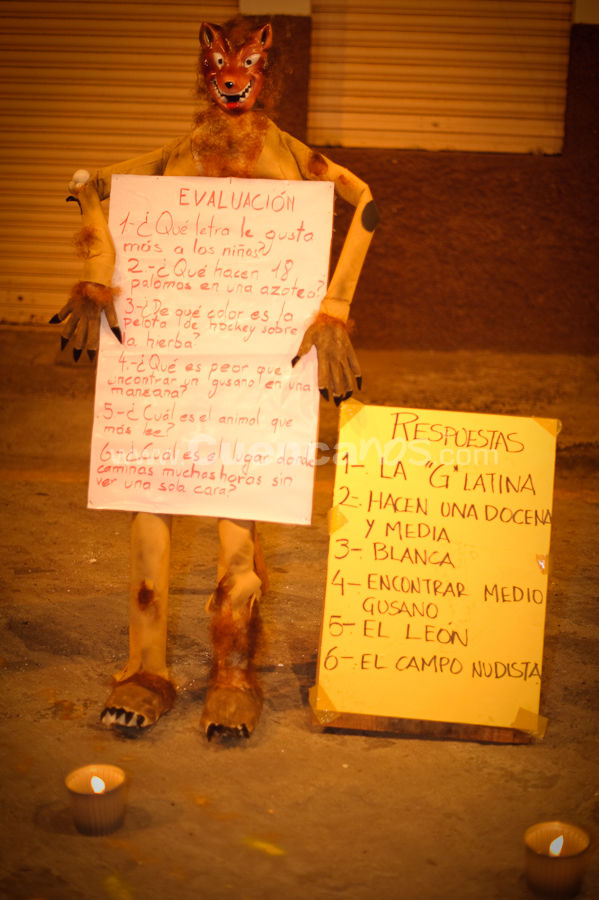 EVALUACIÓN
1-¿Qué letra le gusta
más a los niños?
2.-¿Qué hacen 18
palomas en una azotea?
3.-¿De qué color es la
pelota de hockey sobre
la hierba?
4.-¿Qué es peor que
encontrar un gusano en una
manzana?
5-¿Cuál es el animal que
más lee?
6-¿Cuál es el lugar donde
caminas muchas horas sin
ver una sola cara?
RESPUESTAS
1-. LA "G" LATINA
2- HACEN UNA DOCENA
Y MEDIA
3- BLANCA
4- ENCONTRAR MEDIO
GUSANO
5- EL LEÓN
6- EL CAMPO NUDISTA
www.Cuencanos.com